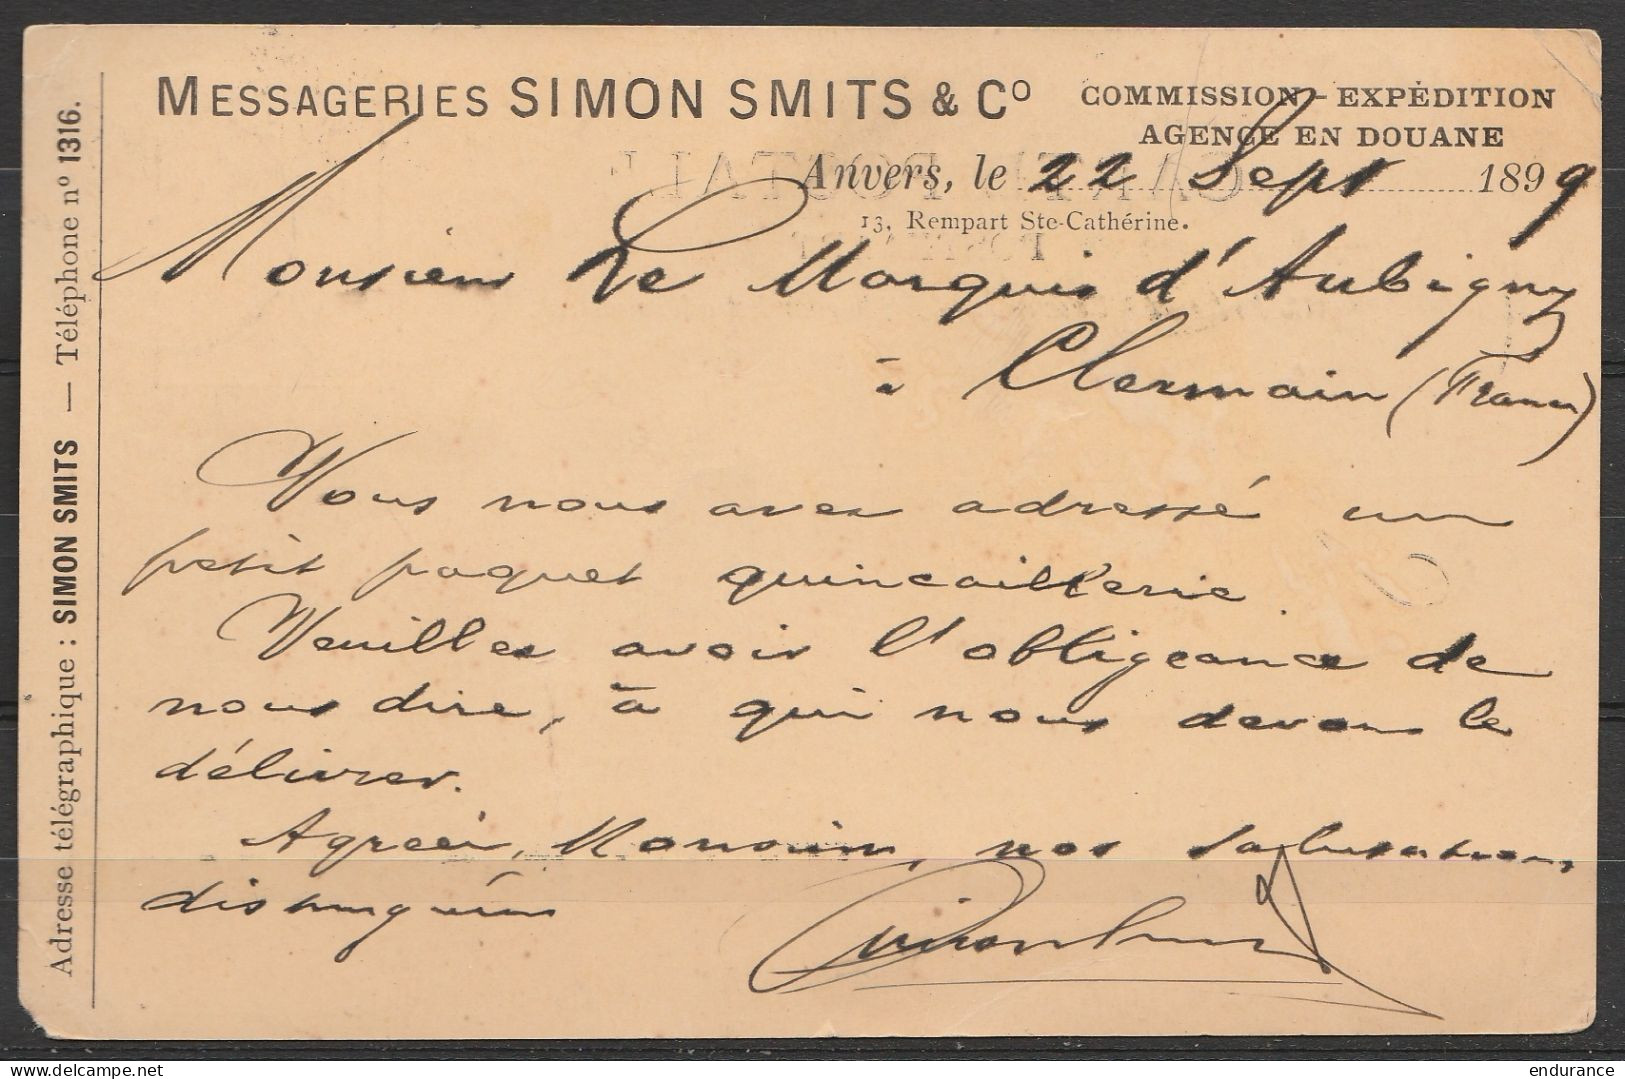 MESSAGERIES SIMON SMITS & Cº
COMMISSION - EXPÉDITION
AGENCE EN DOUANE
Anvers, le 22 Sept 1899
13, Rempart Ste-Cathérine.
Monsieur Le Marquis d'Aubigny
à Clermain (France)
Vous nous avez adressé un
petit paquet quincaillerie.
Veuillez avoir l'obligeance de
nous dire, à qui nous devons le
délivrer.
Agréez, Monsieur, nos salutations
distinguées
Adresse télégraphique : SIMON SMITS — Téléphone nº 1316.
endurance
© delcampe.net